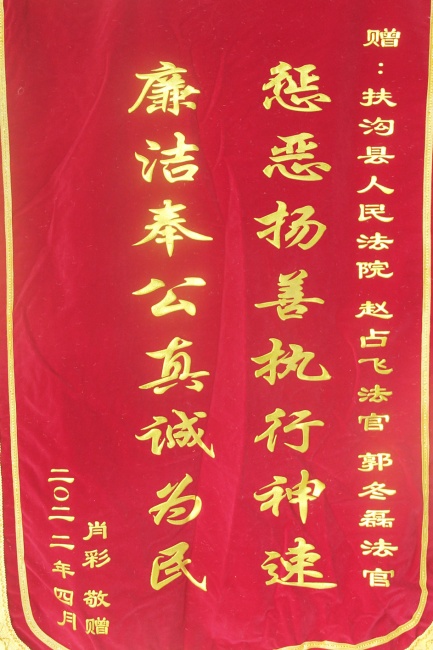 赠：扶沟县人民法院 赵占飞法官 郭冬磊法官
惩恶扬善执行神速
廉洁奉公真诚为民
肖彩 敬赠
二〇二二年四月